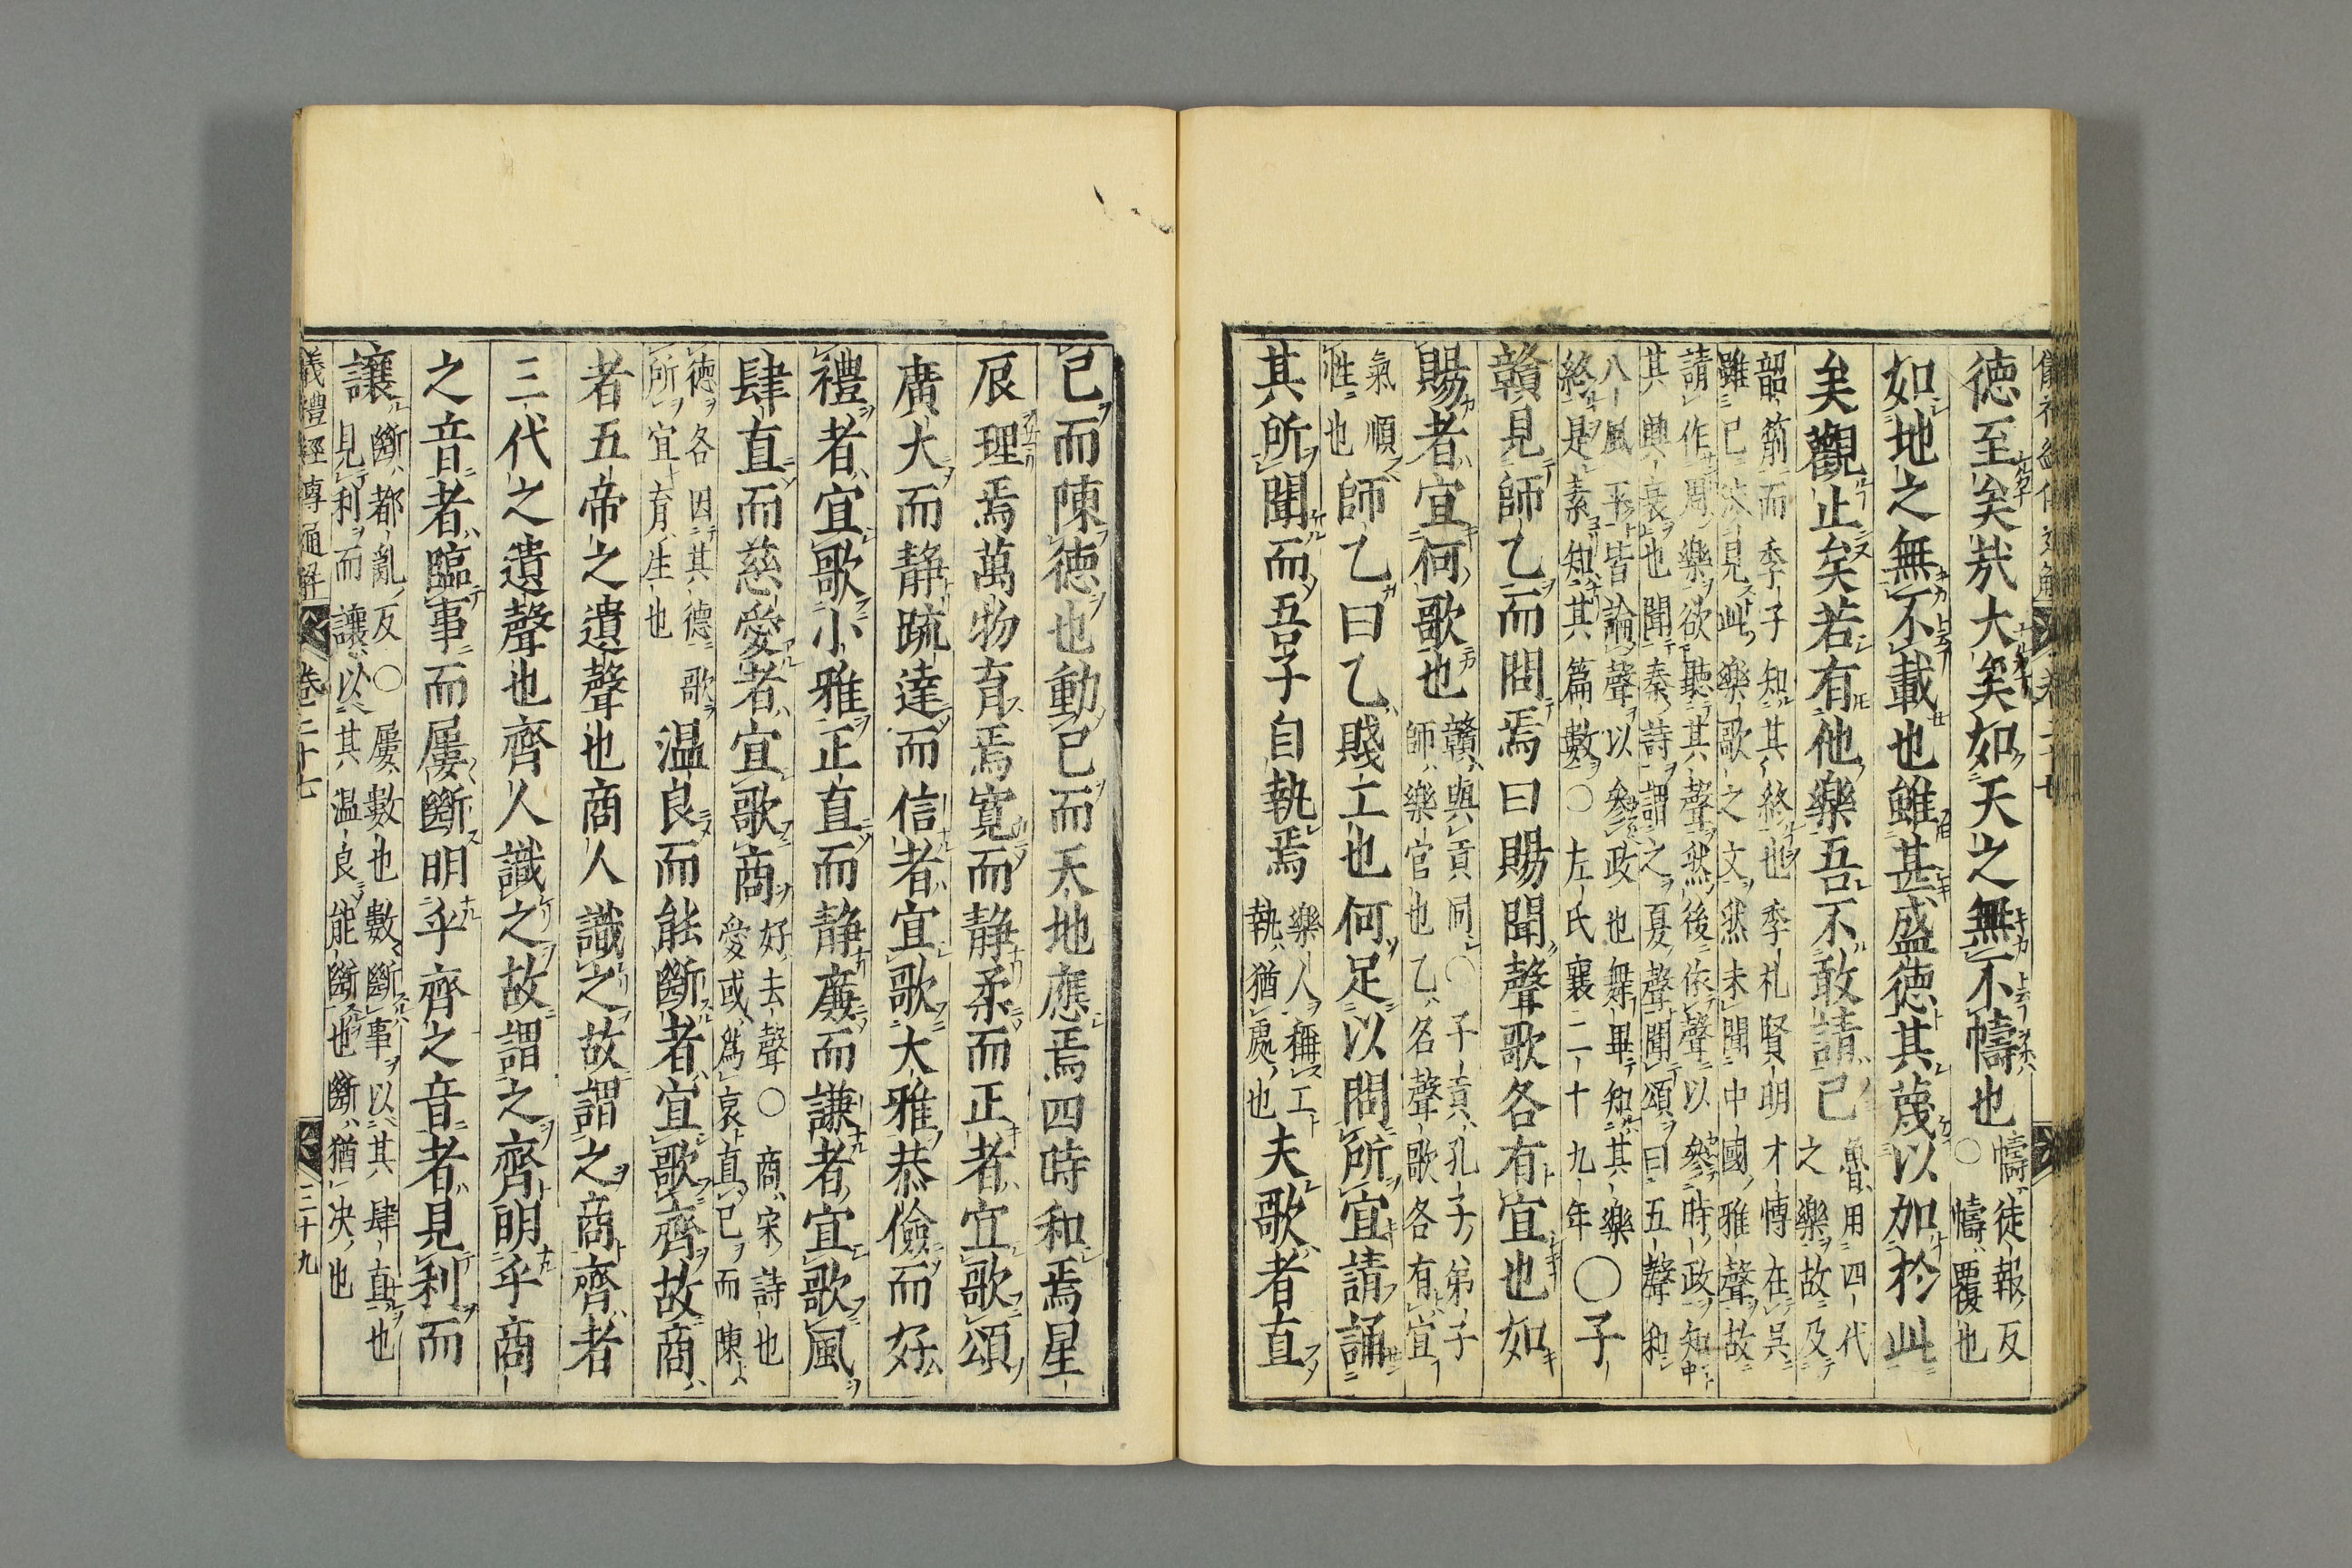 儀禮經傳通解　卷二十七
德至矣哉大矣如天之無不幬也幬徒報反○幬覆也
如地之無不載也雖甚盛德其蔑以加於此
矣觀止矣若有他樂吾不敢請已魯用四代之樂故及
韶箾而季子知其終也季札賢明才博在呉
雖已涉見此樂歌之文然未聞中國雅聲故
請作周樂欲聽其聲然後依聲以參時政知
其興衰也聞秦詩謂之夏聲聞頌曰五聲和
八風平皆論聲以參政也舞畢知其樂
終是素知其篇數○左氏襄二十九年○子
贛見師乙而問焉曰賜聞聲歌各有宜也如
賜者宜何歌也贛與貢同○子貢孔子弟子師樂官也乙名聲歌各有宜
氣順性也師乙曰乙賤工也何足以問所宜請誦
其所聞而吾子自執焉樂人稱工執猶處也夫歌者直
己而陳德也動己而天地應焉四時和焉星
辰理焉萬物育焉寬而静柔而正者宜歌頌
廣大而静疏達而信者宜歌大雅恭儉而好
禮者宜歌小雅正直而静廉而謙者宜歌風
肆直而慈愛者宜歌商好去聲○商宋詩也愛或爲哀直己而陳
德各因其德歌所宜育生也温良而能斷者宜歌齊故商
者五帝之遺聲也商人識之故謂之商齊者
三代之遺聲也齊人識之故謂之齊明乎商
之音者臨事而屢斷明乎齊之音者見利而
讓斷都亂反○屢數也數斷事以其肆直也見利而讓以其温良能斷也斷猶决也
儀禮經傳通解　卷二十七　三十九